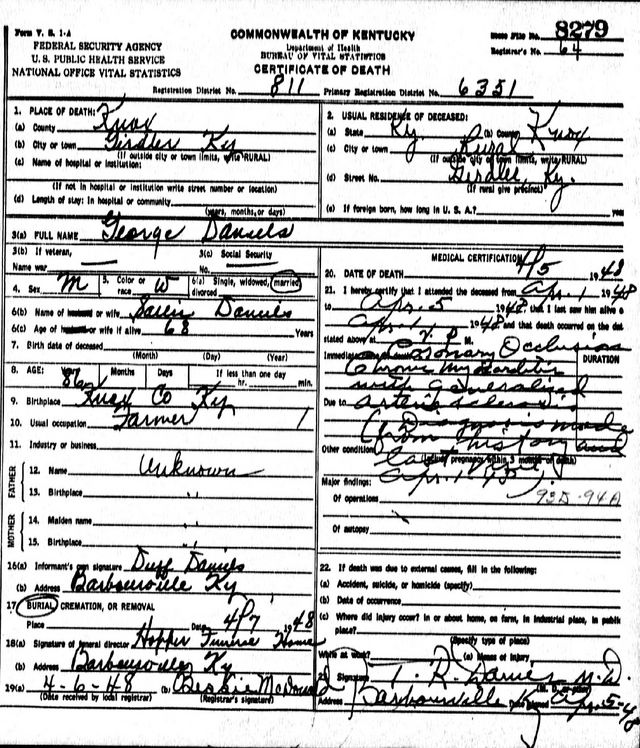 Form V. S. 1-A
FEDERAL SECURITY AGENCY
U. S. PUBLIC HEALTH SERVICE
NATIONAL OFFICE VITAL STATISTICS
COMMONWEALTH OF KENTUCKY
Department of Health
BUREAU OF VITAL STATISTICS
CERTIFICATE OF DEATH
State File No. 8279
Registrar's No. 64
Registration District No. 811 Primary Registration District No. 6351
1. PLACE OF DEATH:
(a) County Knox
(b) City or town Girdler Ky
(If outside city or town limits, write RURAL)
(c) Name of hospital or institution:
(If not in hospital or institution write street number or location)
(d) Length of stay: In hospital or community
(years, months, or days)
2. USUAL RESIDENCE OF DECEASED:
(a) State Ky. (b) County Knox
(c) City or town Rural
(If outside city or town limits, write RURAL)
(d) Street No. Girdler, Ky.
(If rural give precinct)
(e) If foreign born, how long in U. S. A.? years
3(a) FULL NAME George Daniels
3(b) If veteran,
Name war
3(c) Social Security
No.
4. Sex M 5. Color or race W 6(a) Single, widowed, married divorced
6(b) Name of husband or wife Sallie Daniels
6(c) Age of husband or wife if alive 68 Years
7. Birth date of deceased
(Month) (Day) (Year)
8. AGE: 86 Months Days If less than one day
hr. min.
9. Birthplace Knox Co Ky
10. Usual occupation Farmer 1
11. Industry or business
FATHER
12. Name Unknown
13. Birthplace "
MOTHER
14. Maiden name
15. Birthplace "
16(a) Informant's own signature Duff Daniels
(b) Address Barbourville Ky
17 BURIAL, CREMATION, OR REMOVAL
Place Date 4/7 1948
18(a) Signature of funeral director Hopper Funeral Home
(b) Address Barbourville Ky
19(a) 4-6-48 (b) Bessie McDonald
(Date received by local registrar) (Registrar's signature)
MEDICAL CERTIFICATION
20. DATE OF DEATH 4/5 1948
21. I hereby certify that I attended the deceased from Apr. 1 1948
to Apr. 5 1948, that I last saw him alive o
Apr. 1, 1948 and that death occurred on the dat
stated above at P M.
Immediate Coronary Occlusion
DURATION
Chronic Myocarditis
with generalized
Due to arteriosclerosis
(Diagnosis made
from history and
Other condition last
(Include pregnancy within 3 months of death)
Apr. 1-48)
Major findings:
Of operations 93D-94A
Of autopsy
22. If death was due to external causes, fill in the following:
(a) Accident, suicide, or homicide (specify)
(b) Date of occurrence
(c) Where did injury occur? In or about home, on farm, in industrial place, in public
place?
(Specify type of place)
While at work? (e) Means of injury
Signature T. R. Davies M.D.
(M. D. or other)
Address Barbourville Ky Date signed Apr. 5-48